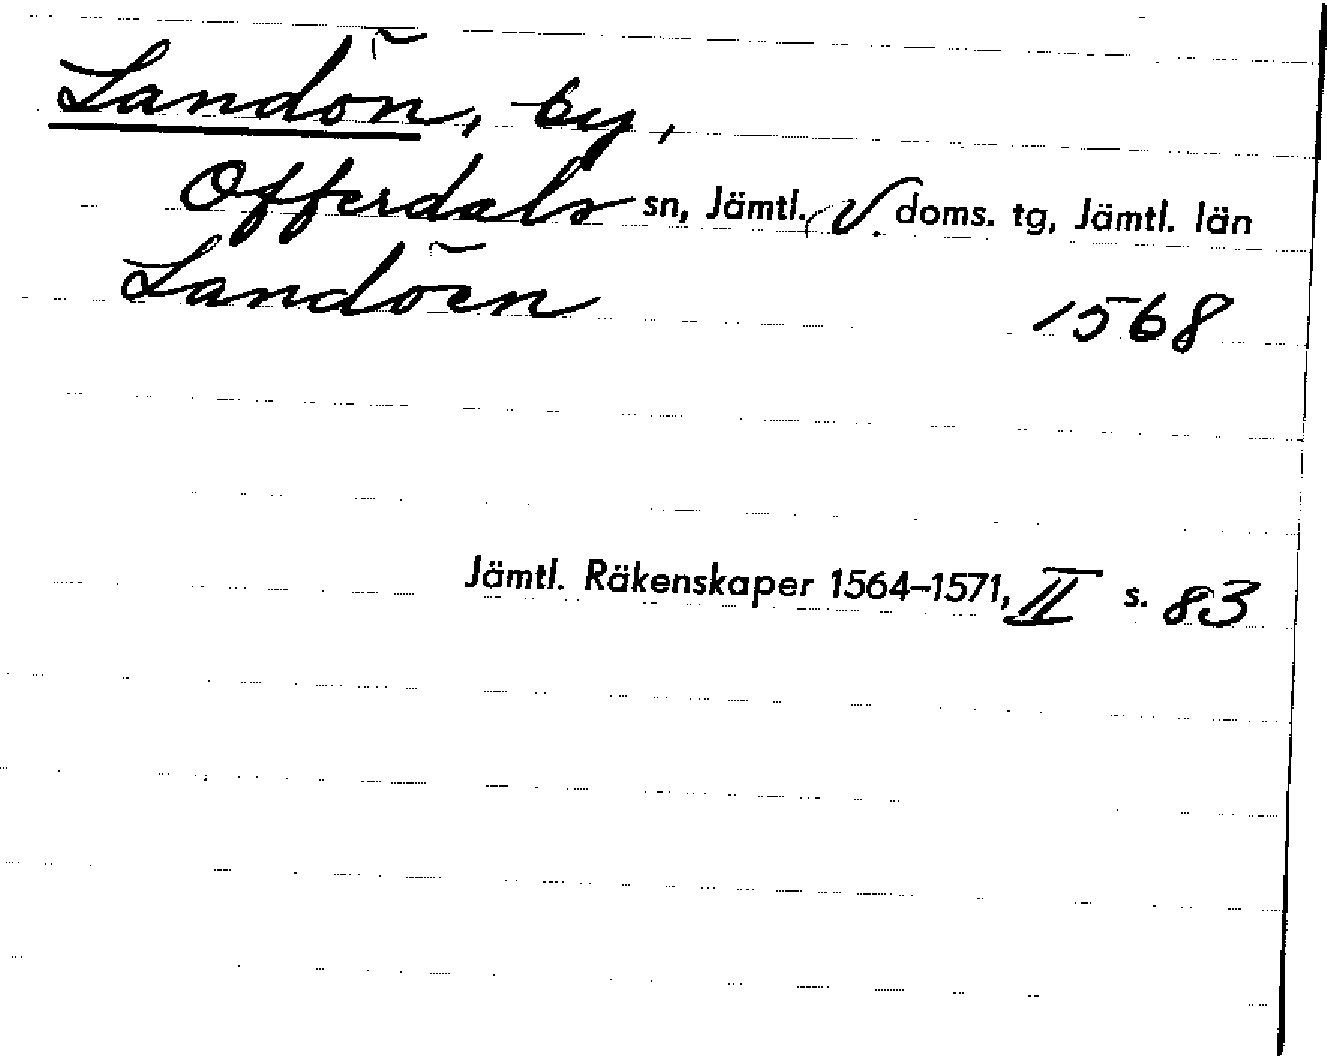 Landön, by,
Offerdals sn, Jämtl. v. doms. tg, Jämtl. län
Landöen 1568
Jämtl. Räkenskaper 1564–1571, II s. 83